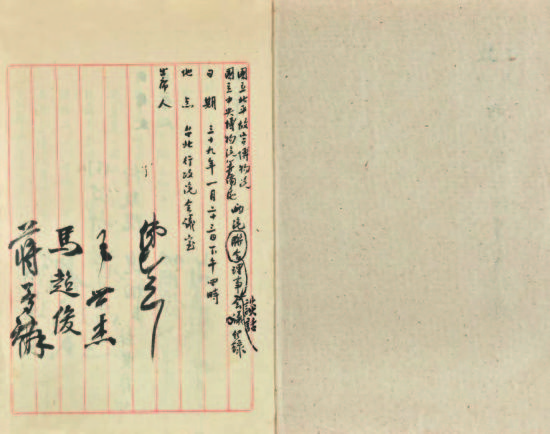 國立北平故宮博物院
國立中央博物院籌備處
兩院聯合理事会議紀錄
談話
日期 三十九年一月二十三日下午四時
地点 台北行政院会議室
出席人
王世杰
馬超俊
蔣